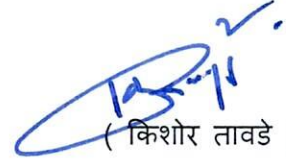 ( किशोर तावडे